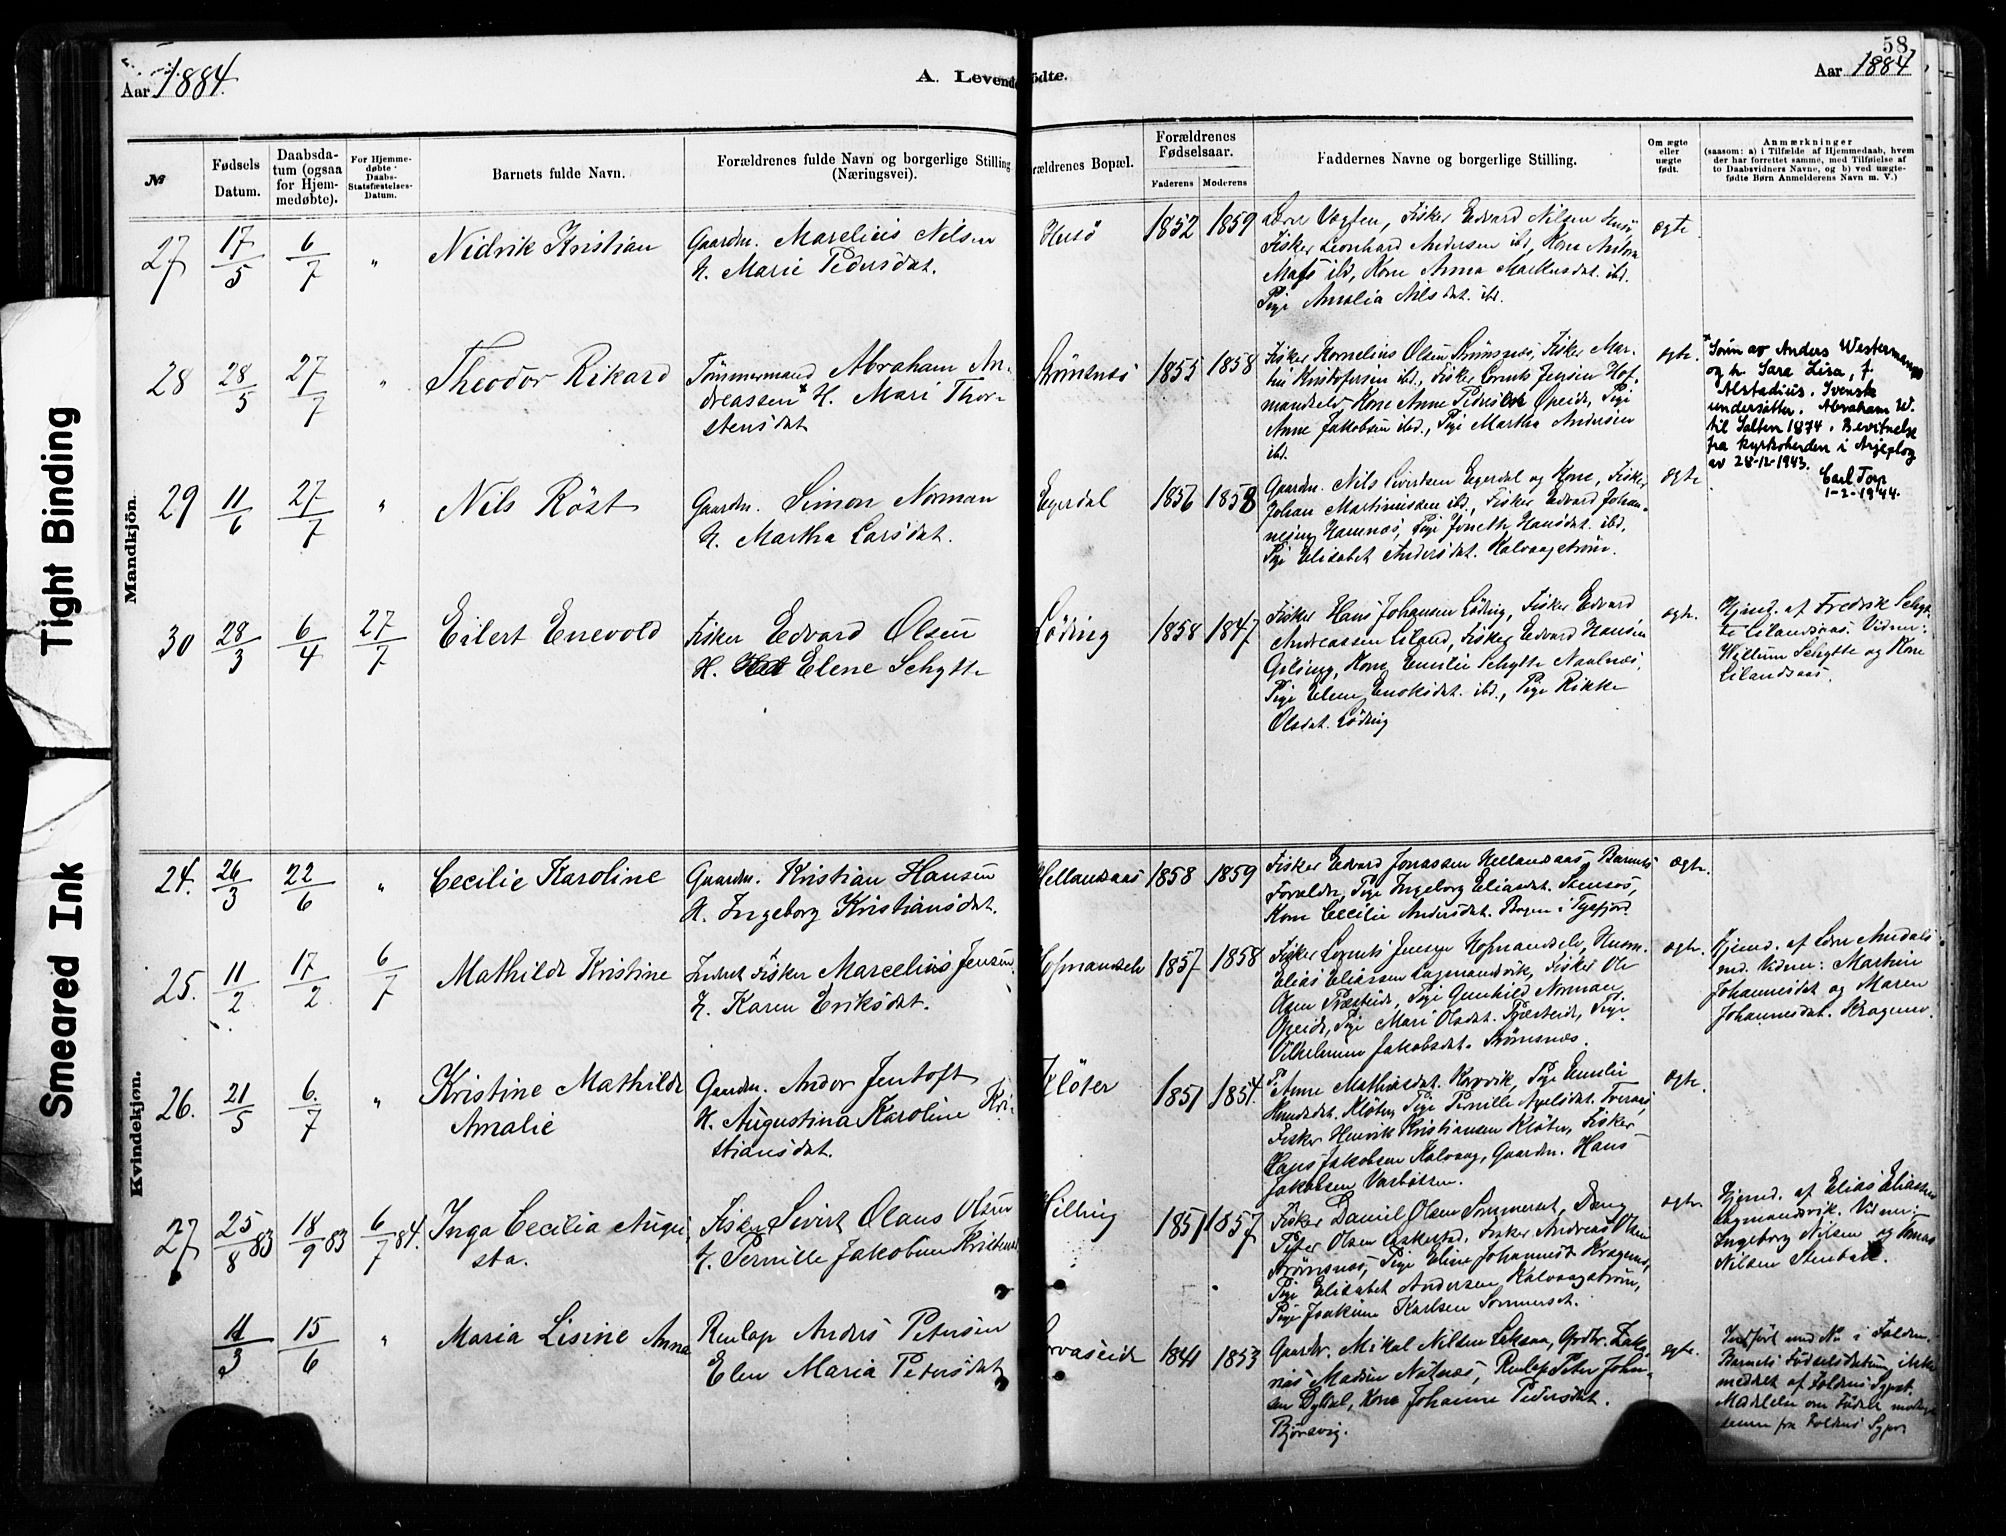 58
Aar 1884.
A. Levende
ødte.
Aar 1884
№
Fødsels Datum.
Daabsdatum (ogsaa for Hjemmedøbte).
For Hjemmedøbte Daabs-Statsfæstelses-Datum.
Barnets fulde Navn.
Forældrenes fulde Navn og borgerlige Stilling (Næringsvei).
rældrenes Bopæl.
Forældrenes Fødselsaar.
Faderens
Moderens
Faddernes Navne og borgerlige Stilling.
Om ægte eller uægte født.
Anmærkninger
(saasom: a) i Tilfælde af Hjemmedaab, hvem
der har forrettet samme, med Tilføielse af
to Daabsvidners Navne, og b) ved uægte-
fødte Børn Anmelderens Navn m. V.)
Tight Binding
Smeared Ink
Mandkjön.
Kvindekjön.
27 17/5 6/7 " Nidrik Kristian
Gaardm. Marelius Nilsen
H. Marie Pedersdat.
Husö 1852 1859
Fisker Edvard Nilsen Husö,
Fisker Leonhard Andersen ibd, Kone
ibd, Kone Anna Markusdat. ibd.
Pige Amalia Nilsdat. ibd.
ægte
28 28/5 27/7 " Theodor Rikard
Tömmermand Abraham An-
dreassen x H. Mari Thor-
stensdat
Strömsnes 1855 1858
Fisker Kornelius Olsen Strömsnes, Fisker Mar-
tin Kristofersen ibd., Fisker Jensen Hof-
mandselv, Kone Anne Opeide, Pige
Anne Jakobsen ibd., Pige Martha Andersen
ibd.
ægte.
x Sönn av Anders Westermann
og h. Sara Lisa, f.
Alstadius. Svenske
undersåtter. Abraham W.
til Salten 1874. Bevitnelse
fra kyrkoherden i Arjeplog
av 28-12-1943.
Carl Torp
1-2-1944.
29 11/6 27/7 " Nils Röst
Gaardm. Simon Norman
H. Martha Larsdat.
Egerdal 1856 1858
Gaardm. Nils Sivertsen Egerdal og Kone, Fisker
Johan Martinussen ibd., Fisker Edvard Johan-
nesen Hamnes, Pige Hansdat. ibd.
Pige Elisabet Andersdat. Kalvaagström.
ægte
30 28/3 6/4 27/7 Eilert Enevold
Fisker Edvard Olsen
H. Elene Schytte
Löding 1858 1847
Fisker Hans Johansen Löding, Fisker Edvard
Andreassen Liland, Fisker Edvard Hansen
Kone Emilie Schytte
Pige Elen Enoksdat. ibd., Pige Rikke
Olsdat. Löding
ægte.
Hjemd. af Fredrik Schyt-
te Lilandsaas. Vidner:
Willum Schytte og Kone
Lilandsaas.
24. 26/3 22/6 " Cecilie Karoline
Gaardm. Kristian Hansen
H. Ingeborg Kristiansdat.
Hellandsaas 1858 1859
Fisker Edvard Jonassen Hellandsaas, Barnets
Foreldre, Pige Ingeborg Eliasdat.
Kone Cecilie Andersdat. Bogen i Tysfjord.
ægte.
25. 11/2 17/2. 6/7 Mathilde Kristine
Inderst Fisker Marcelius Jensen
H. Karen Eriksdat.
Hofmanselv 1857 1858
Fisker Jensen Hofmandselv, Husm.
Elias Eliassen Lagmandsvik, Fisker Ole
Olsen Pige Gunhild Norman
Opeide, Pige Mari Olsdat. Pige
Vilhelmine Jakobsdat. Strömsnes.
ægte.
Hjemd. af
Vidner: Martin
Johannesdat og Maren
Johannesdat. Kragnes.
26. 21/5 6/7 " Kristine Mathilde
Amalie
Gaardm. Andor Jentoft
H. Augustina Karoline Kri-
stiansdat.
Klöten 1851 1854.
Anne Mathiasdat. Korsvik, Pige Emilie
Knudsdat. Klöten, Pige Pernille
Fisker Henrik Kristiansen Klöten, Fisker
Jakobsen Kalvaag, Gaardm. Hans
Jakobsen
ægte.
27 25/8 83 18/9 83 6/7 84. Inga Cecilia Augu-
sta.
Fisker Sivert Olaus Olsen
H. Pernille Jakobine
Helling 1851 1857
Fisker Daniel Olsen Sommerset, Dreng
Peter Olsen Fisker Andreas Olsen
Strömsnes, Pige Eline Johannesd. Kragnes,
Pige Elisabet Andersen Kalvaagström,
Pige Joakime Karlsen Sommerset.
ægte.
Hjemd. af Elias Eliassen
Lagmandsvik. Vidner:
Ingeborg Nilsen og
Nilsen Stenbak.
11/3 15/6 " Maria Lisine Anna
Renlap Anders Petersen
Elen Maria Petersdat
1844 1853
Gaardbr. Mikal Nilsen Leksaa, Gaardbr. Zaka-
rias Madsen Renlap Peter Johan-
sen Kone Johanne Pedersdat.
Björnsvig.
ægte.
Indført med No i Folden.
Barnets Födselsdatum ikke
meddelt af Foldens Sgpr.
Meddelelse om Födsel
senere fra Foldens Sgpr